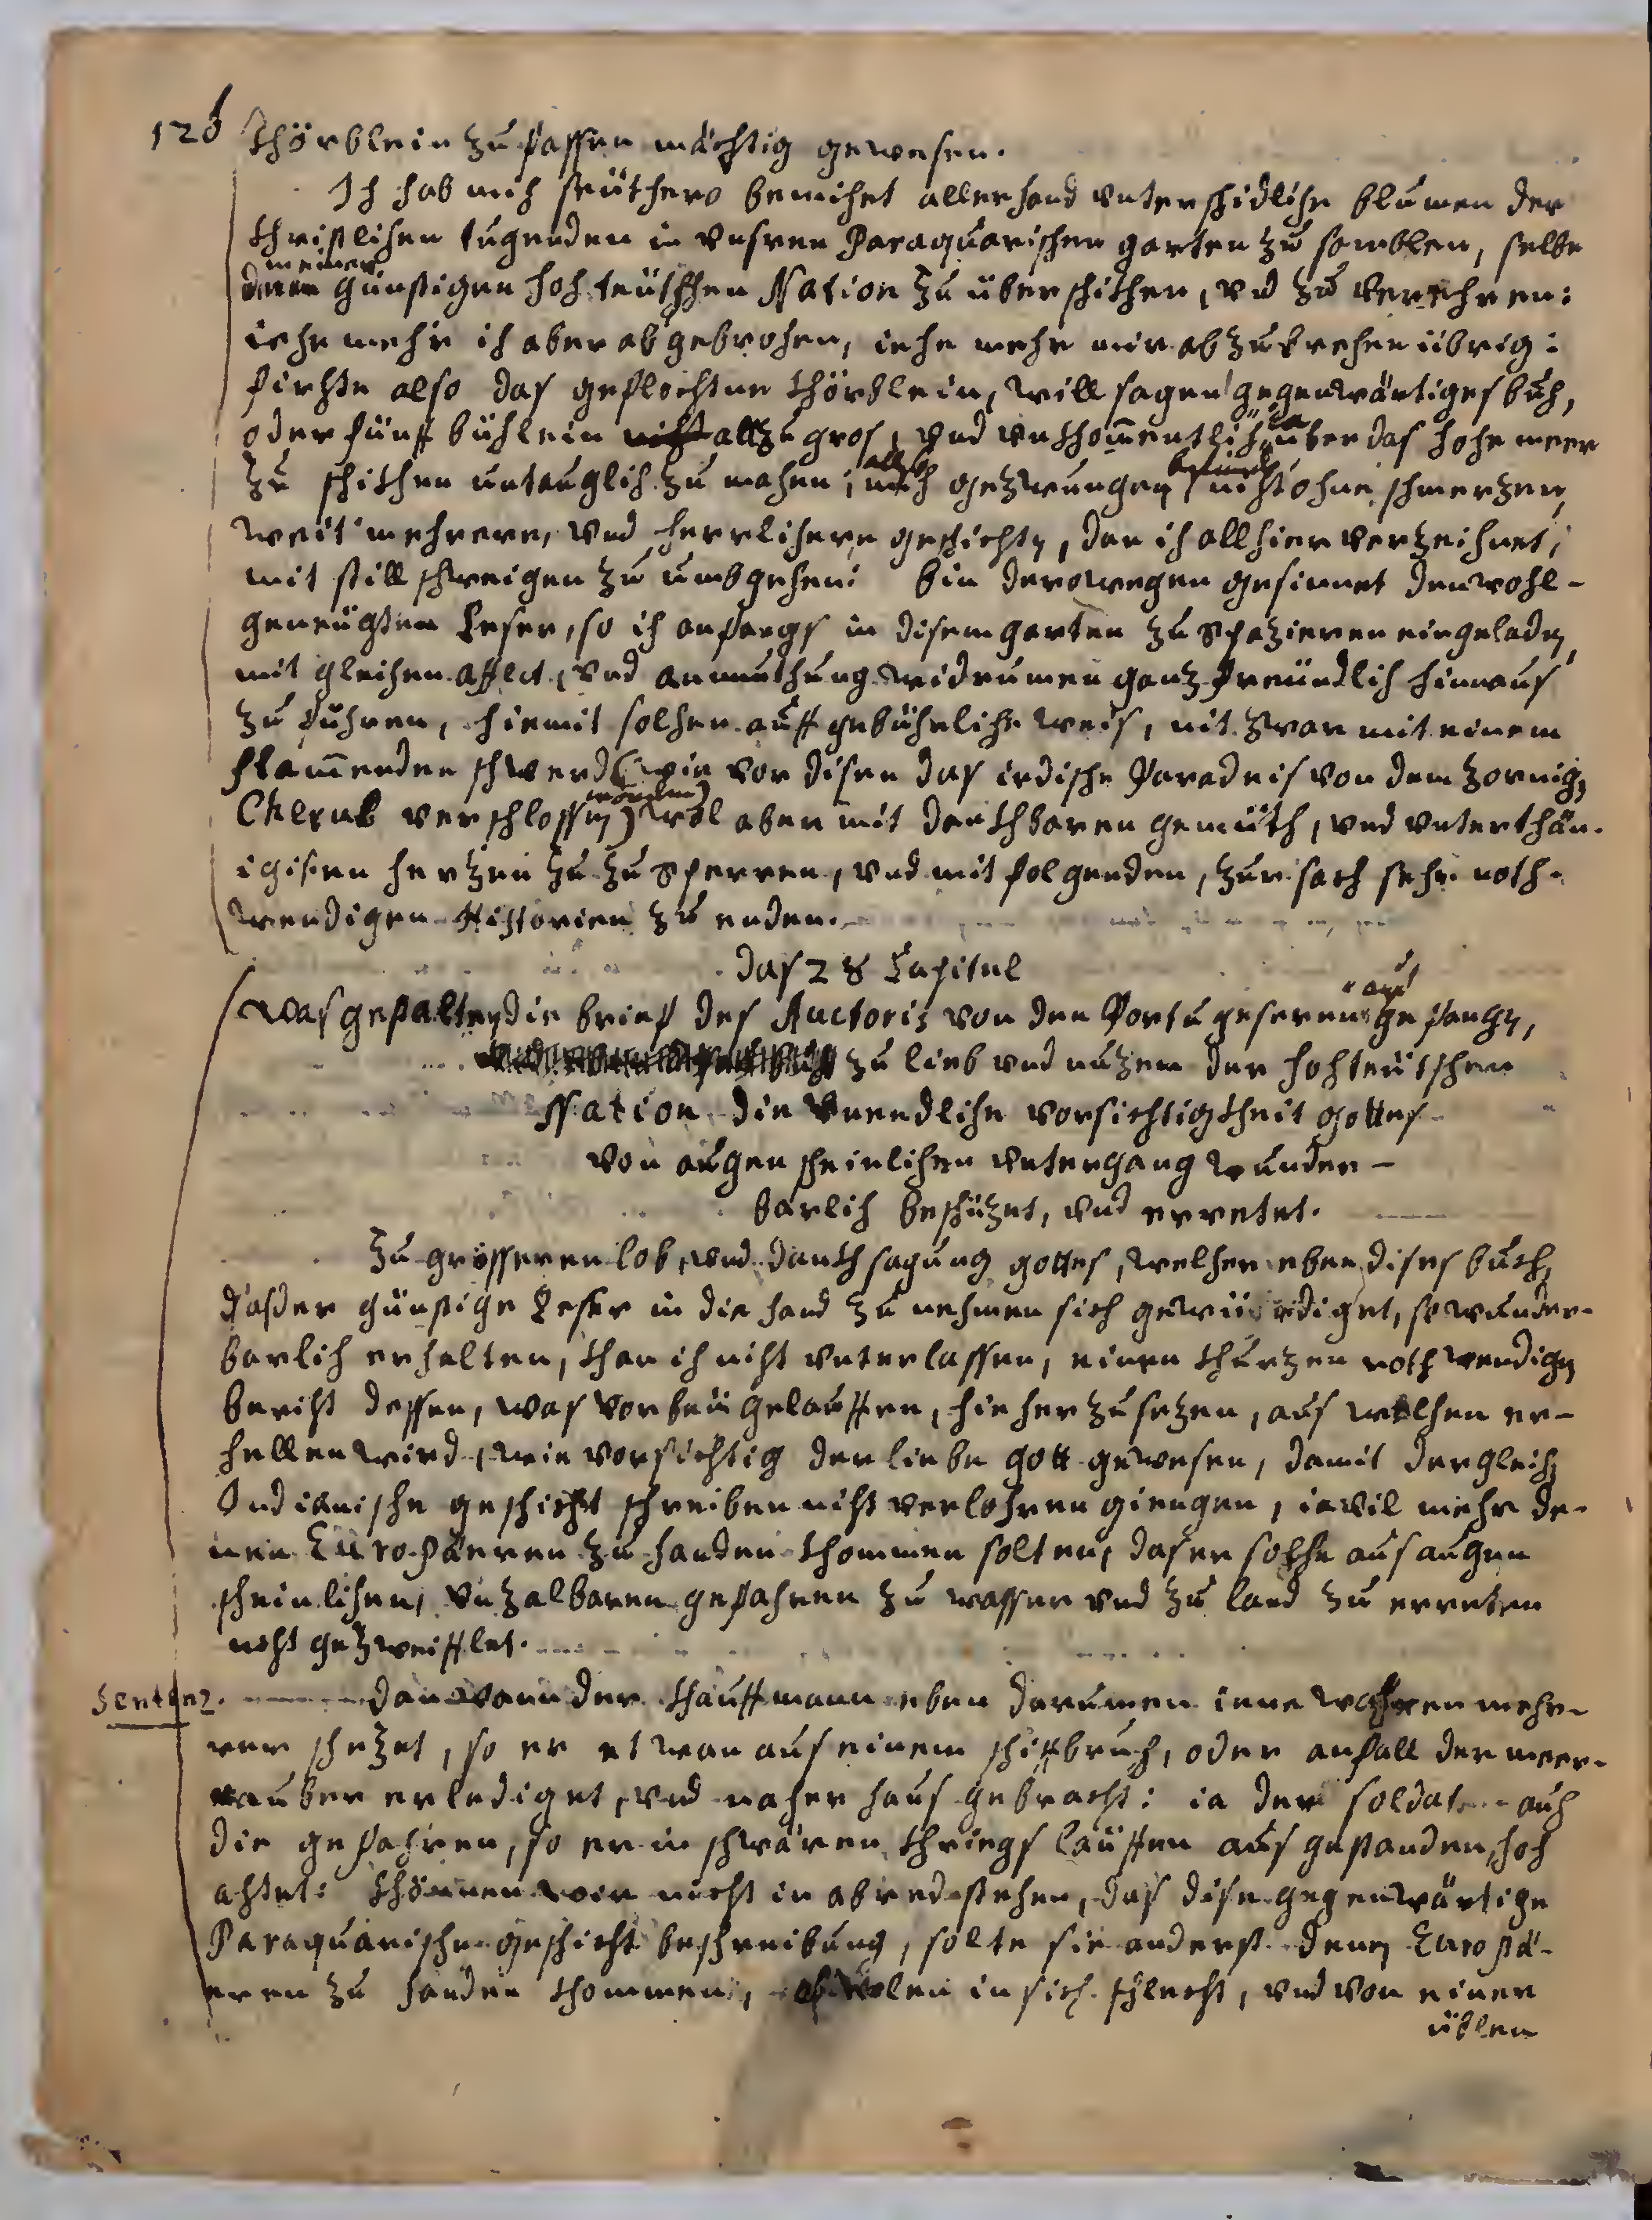 126 Khörblein zu fassen mächtig gewesen.
Ich hab mich seüthero bemihet allerhand vnterschidliche blumen der
Christlichen tugenden in vnsren Paraquarischen garten zu samblen, selbe
meiner
günstigen hochteütschen Nation zu überschikhen, vnd zu verrehren:
iehe mehr ich aber abgebrochen, iehe mehr mir abzubrechen übrig:
firchte also das geflochtne khörblein, will sagen gegenwärtiges buch,
oder fünff büchlein nicht allzu gros, vnd vnkhom̄entlich über das hohe meer
zu schikhen untauglich zu machen; mich gezwungen befinde nicht ohne schmerzen,
weit mehrere, vnd herrlichere geschichten, den ich allhier verzeichnet,
mit stillschweigen zu umbgehen: bin derowegen gesinnet den wohl-
geneügten Leser, so ich anfangs in disem garten zu Spazieren eingeladen,
mit gleichen affect, vnd anmuthung widerumen ganz freündlich hinnaus
zu führen, hiemit solchen auff gebührliche weis, nit zwar mit einem
flam̄enden schwerd (wie vor disen das irdische Paradeis von dem zornigen
worden
Cherub verschlossen) wol aber mit dankhbaren gemüth, vnd vnterthän-
igisten herzen zu zu Sperren, vnd mit folgenden, zur sach sehr noth-
wendigen Historien zu enden.
Das 28 Capitul
auf
Was gestalten die brief des Auctoris von den Portugeseren gefangen,
zu lieb vnd nuzen der hochteütschen
Nation die vnendliche vorsichtigkheit gottes
von augenscheinlichen vntergang wunder-
barlich beschüzet, vnd erretet.
Zu grösseren lob, vnd dankhsagung gottes, welcher eben dises buch,
das der günstige Leser in die hand zu nehmen sich gewürdiget, so wunder-
barlich erhalten, khan ich nicht vnterlassen, einen khurzen nothwendigen
bericht dessen, was vorbeü geloffen, hieher zu sezen, aus welchen er-
hellen wird, wie vorsichtig der liebe gott gewesen, damit dergleichen
Indianische geschicht schreiben nicht verlohren giengen, ia vil mehr de-
nen Europäeren zu handen khommen solten, das er solche aus augen
scheinlichen, vnzalbaren gefahren zu wasser vnd zu land zu erreten
nicht gezweifflet.
Sentenz. dan wann der khauffmann eben darumen iene wahren mehr-
rer schezet, so er etwan aus einem schiffbruch, oder anfall der meer-
rauber erlediget, vnd nacher haus gebracht: ia der soldat auch
die gefahren, so er in schwären khriegs läuffen aus gestanden, hoch
achtet: khönnen wir nicht in abred stehen, das dise gegenwärtige
Paraquarische geschicht beschreibung, solte sie anderst denen Europä-
eren zu handen khommen, in sich schlecht, vnd von einer
üblen